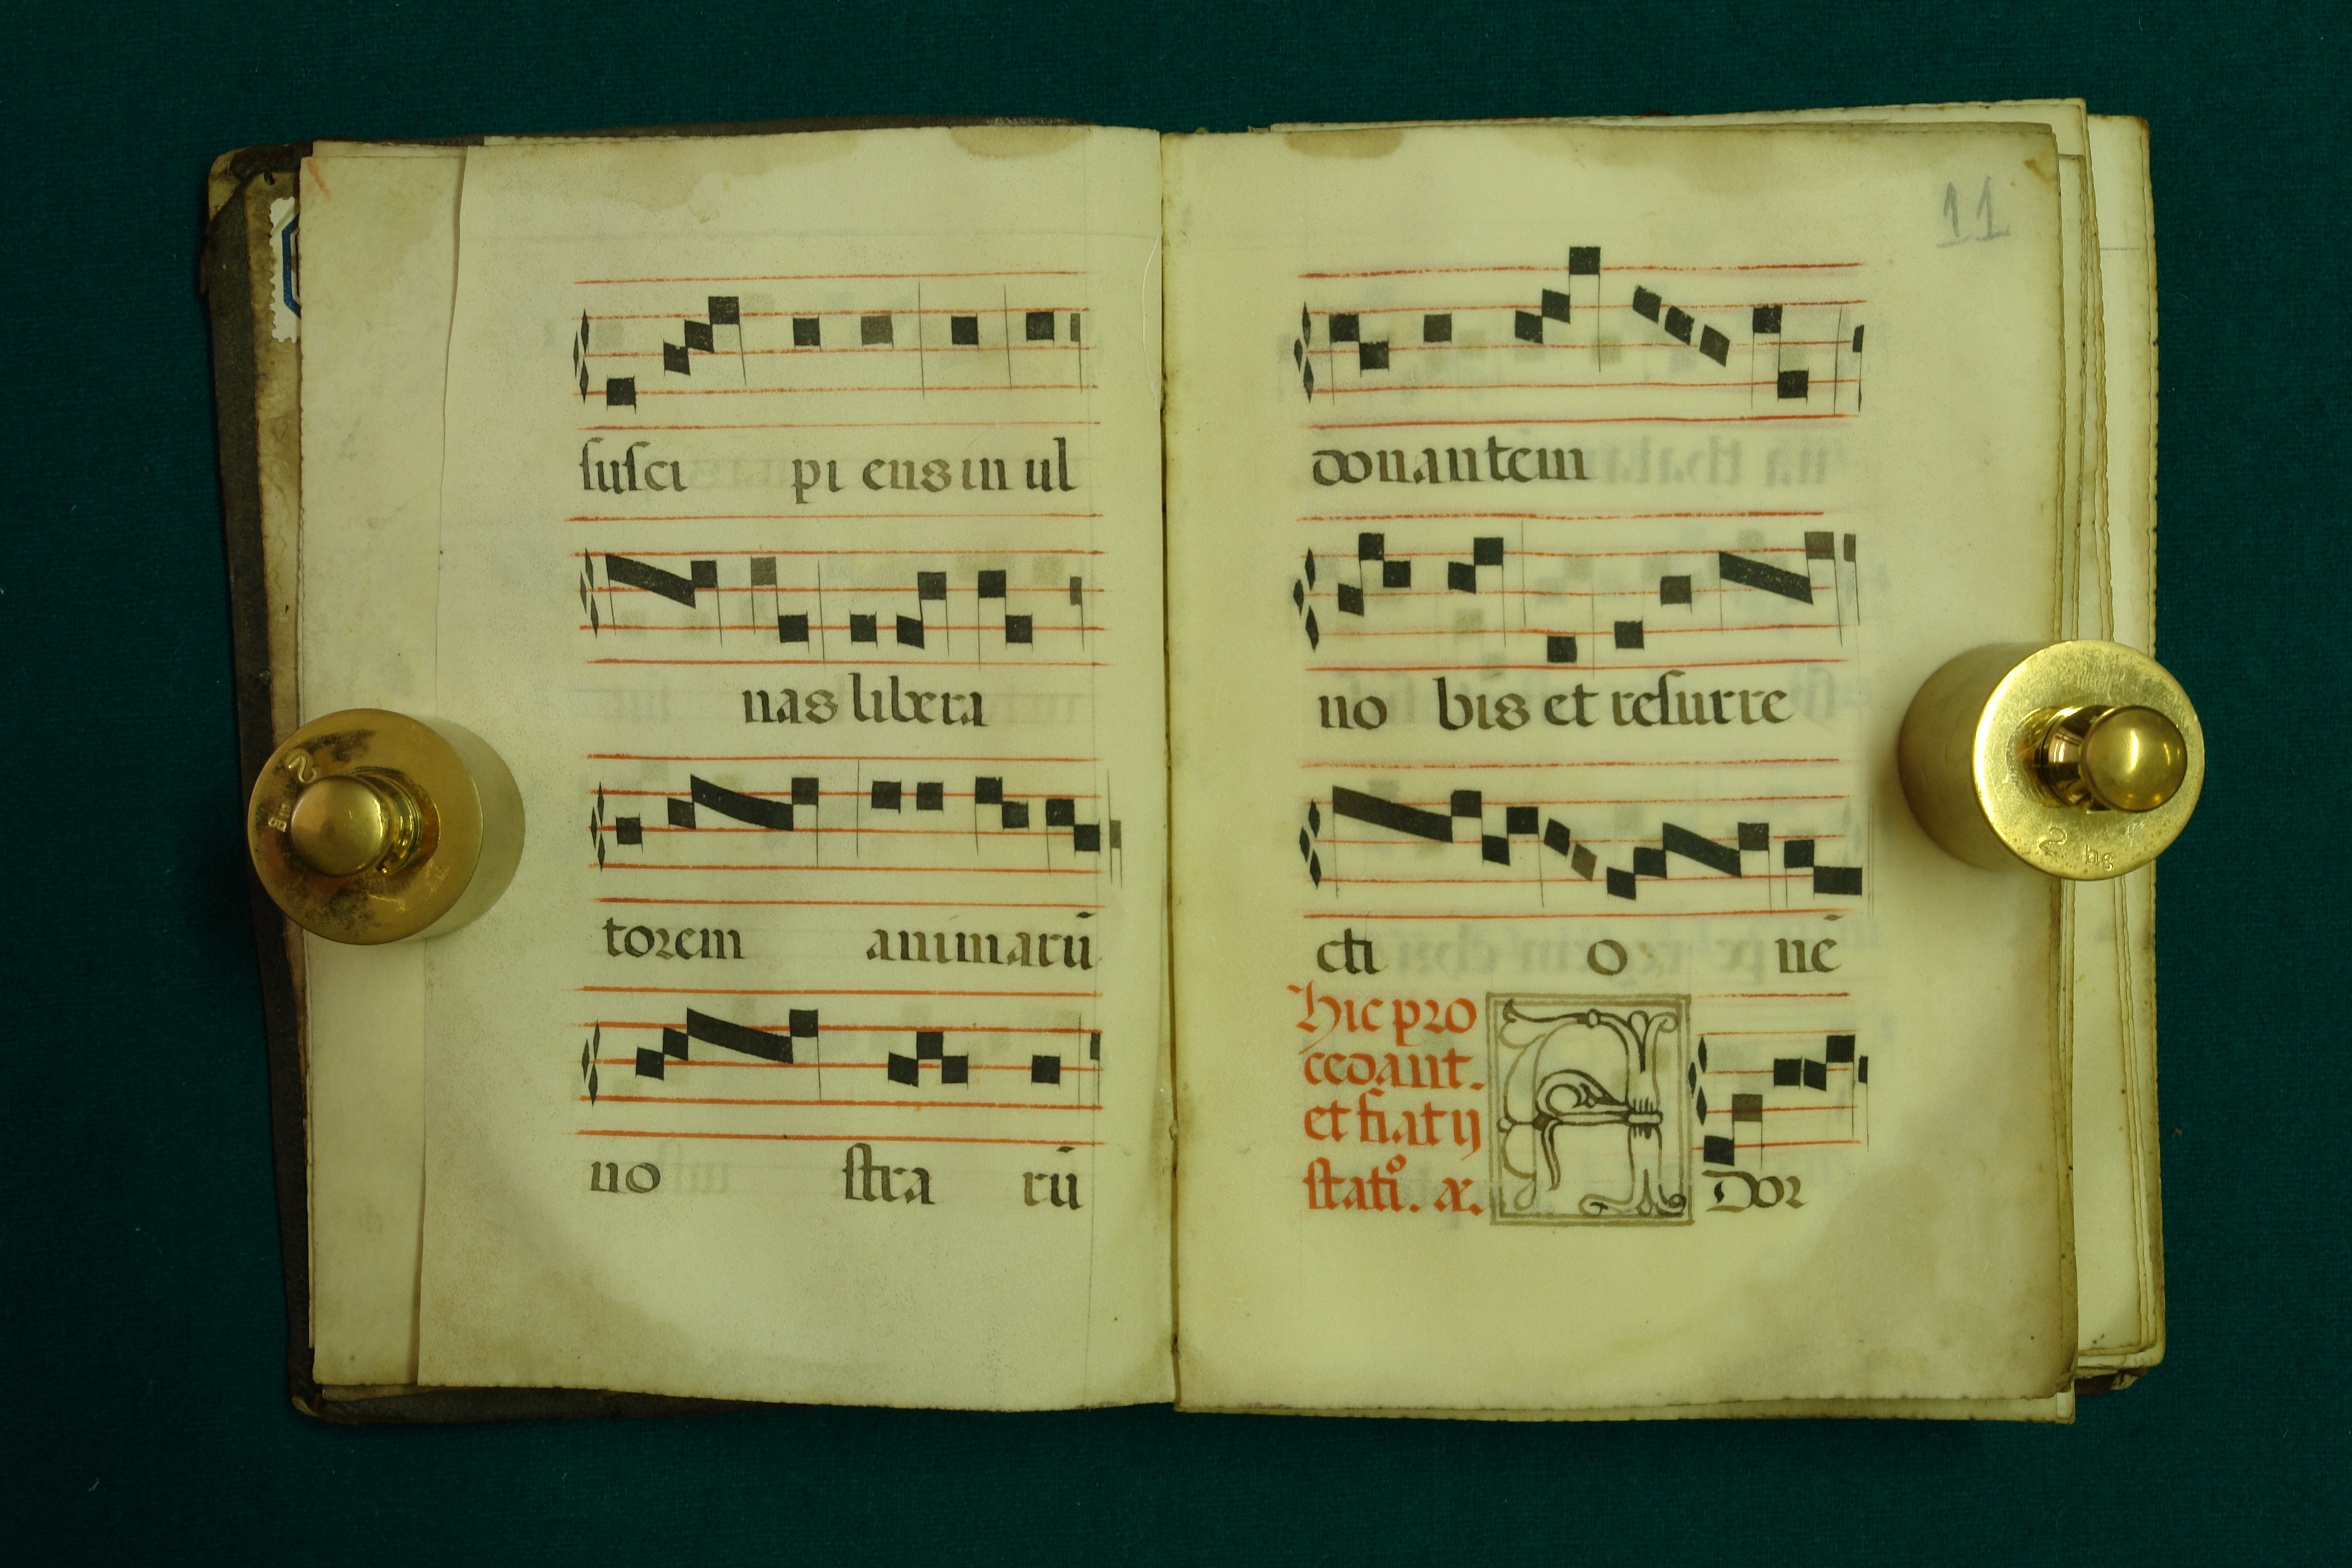 suſci pi ens in ul
nas libera
torem animarū
no ſtra rū
11
donantem
no bis et reſurre
cti o nē
Hic pro
cedant.
et fiat ij
ſtatiº. a.
A Dor
2
2 hg